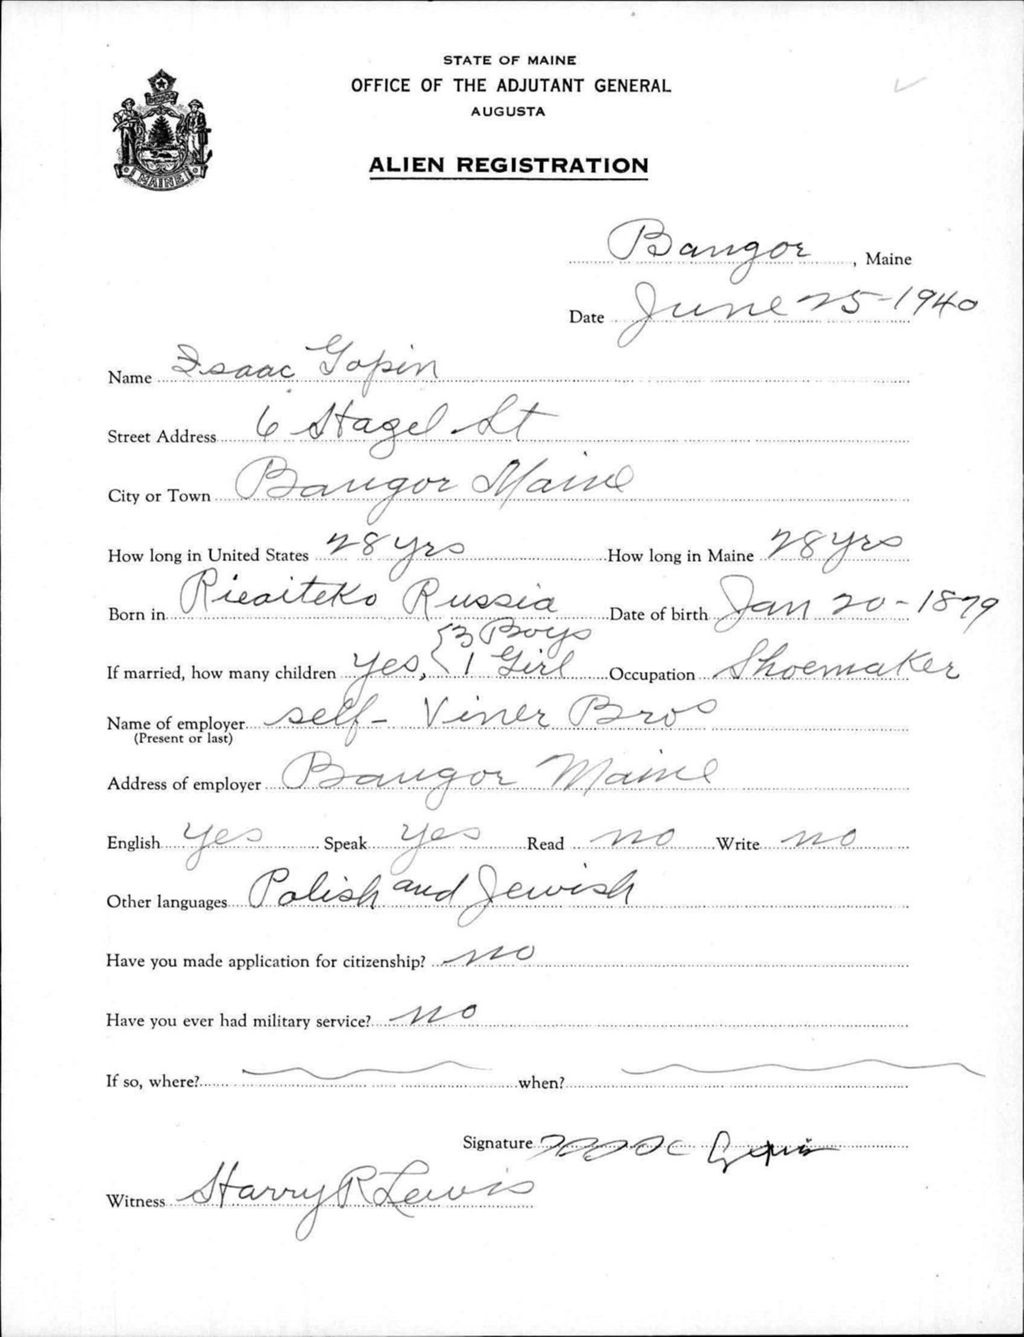 STATE OF MAINE
OFFICE OF THE ADJUTANT GENERAL
AUGUSTA
ALIEN REGISTRATION
MAINE
Bangor, Maine
Date June 25-1940
Name Isaac Gopin
Street Address 6 Hagel St
City or Town Bangor Maine
How long in United States 28 yrs How long in Maine 28 yrs
Born in Russia Date of birth Jan 20-1879
If married, how many children Yes, { 3 Boys 1 Girl Occupation Shoemaker
Name of employer self- Viner Bros
(Present or last)
Address of employer Bangor Maine
English Yes Speak Yes Read no Write no
Other languages Polish and Jewish
Have you made application for citizenship? no
Have you ever had military service? no
If so, where? when?
Signature
Witness Harry R Lewis